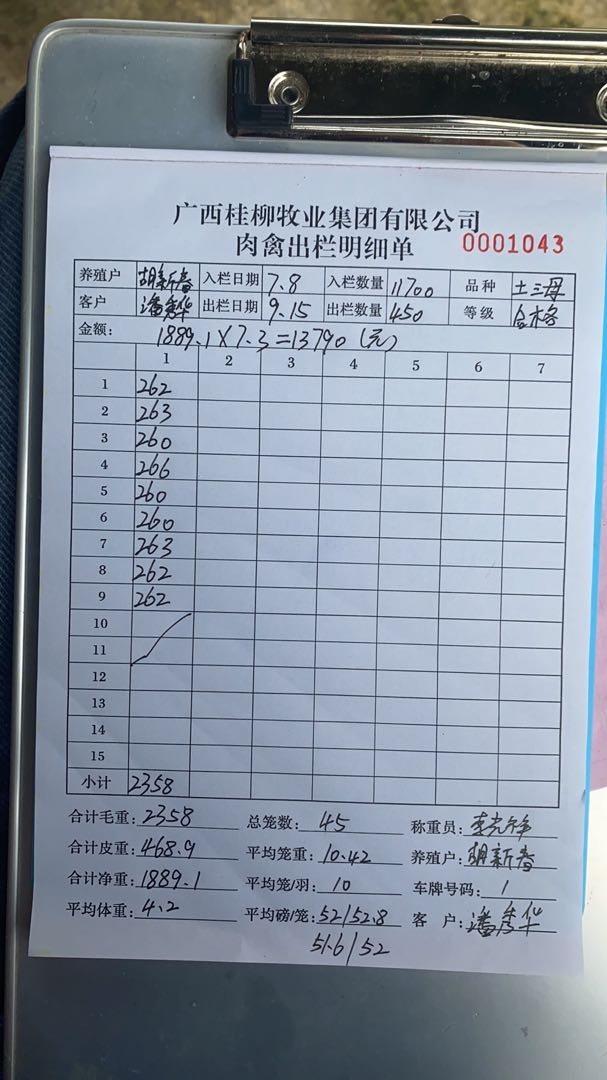 广西桂柳牧业集团有限公司
肉禽出栏明细单 0001043
养殖户 胡新春 入栏日期 7.8 入栏数量 11700 品种 土三母
客户 潘彦华 出栏日期 9.15 出栏数量 450 等级 合格
金额: 1889.1X7.3=13790(元)
1 2 3 4 5 6 7
1 262
2 263
3 260
4 266
5 260
6 260
7 263
8 262
9 262
10
11
12
13
14
15
小计 2358
合计毛重: 2358 总笼数: 45 称重员:
合计皮重: 468.9 平均笼重: 10.42 养殖户: 胡新春
合计净重: 1889.1 平均笼/羽: 10 车牌号码: 1
平均体重: 4.2 平均磅/笼: 52/52.8 客 户: 潘彦华
51.6/52